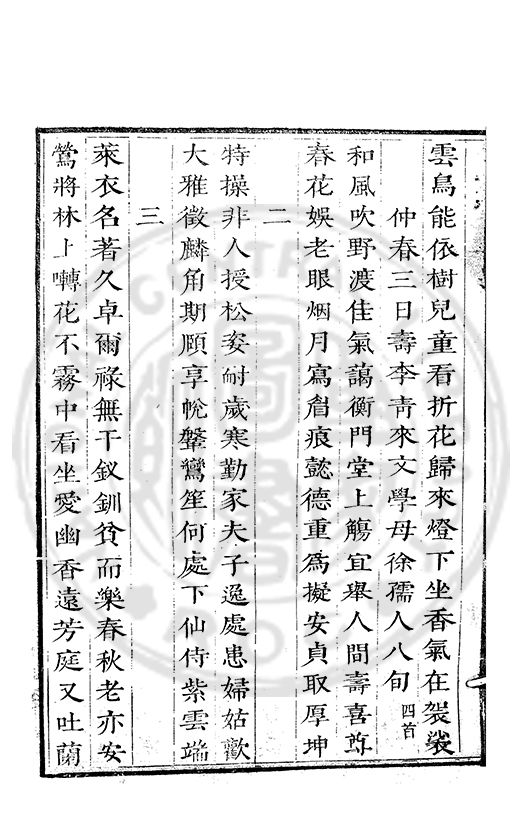 雲鳥能依樹兒童看折花歸來燈下坐香氣在袈裟
仲春三日壽李青來文學母徐孺人八旬 四首
和風吹野渡佳氣藹衡門堂上觴宜舉人間壽喜尊
春花娛老眼烟月寫眉痕懿德重爲擬安貞取厚坤
二
特操非人授松姿耐歲寒勤家夫子逸處患婦姑歡
大雅徵麟角期頤享帨鞶鸞笙何處下仙侍紫雲端
三
萊衣名著久卓爾祿無干釵釧貧而樂春秋老亦安
鶯將林上囀花不霧中看坐愛幽香遠芳庭又吐蘭